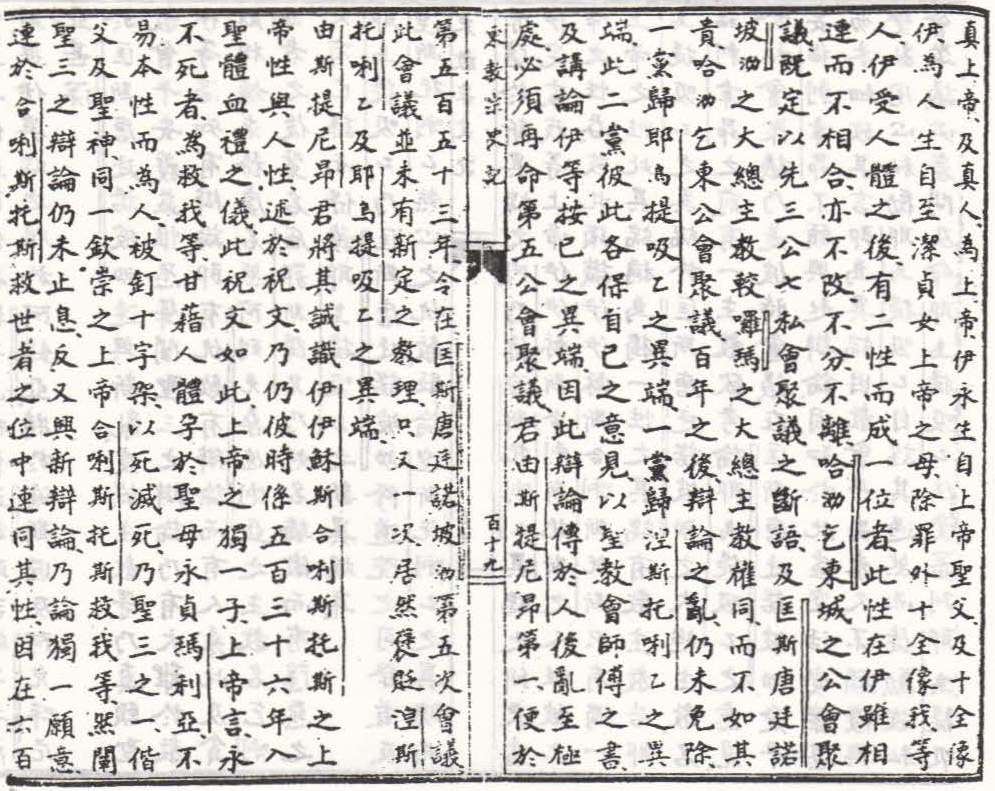 真上帝、及真人、為上帝、伊永生自上帝聖父、及十全像
伊、為人生自至潔貞女上帝之母、除罪外十全像我等
人、伊受人體之後、有二性而成一位者、此性在伊雖相
連而不相合、亦不改、不分、不離、哈泐乞東城之公會聚
議、既定以先三公七私會聚議之斷語、及匡斯唐廷諾
坡泐之大總主教較囉瑪之大總主教權同、而不如其
貴、哈泐乞東公會聚議、百年之後、辯論之亂仍未免除、
一黨歸耶烏提吸乙之異端、一黨歸涅斯托唎乙之異
端、此二黨彼此各保自己之意見、以聖教會師傅之書、
及講論伊等按己之異端、因此辯論傳於人後亂至極
處、必須再命第五公會聚議、君由斯提尼昂第一、便於
東教宗史記
百十九
第五百五十三年、令在匡斯唐廷諾坡泐第五次會議、
此會議並未有新定之教理、只又一次居然褒貶涅斯
托唎乙及耶烏提吸乙之異端、
由斯提尼昂君將其誠識伊伊穌斯合唎斯托斯之上
帝性與人性、述於祝文、乃仍彼時係五百三十六年入
聖體血禮之儀、此祝文如此、上帝之獨一子、上帝言、永
不死者、為救我等、甘藉人體孕於聖母永貞瑪利亞、不
易本性而為人、被釘十字架、以死滅死、乃聖三之一、偕
父及聖神同一欽崇之上帝合唎斯托斯救我等、然闡
聖三之辯論仍未止息、反又興新辯論、乃論獨一願意、
連於合唎斯托斯救世者之位中、連同其性、因在六百